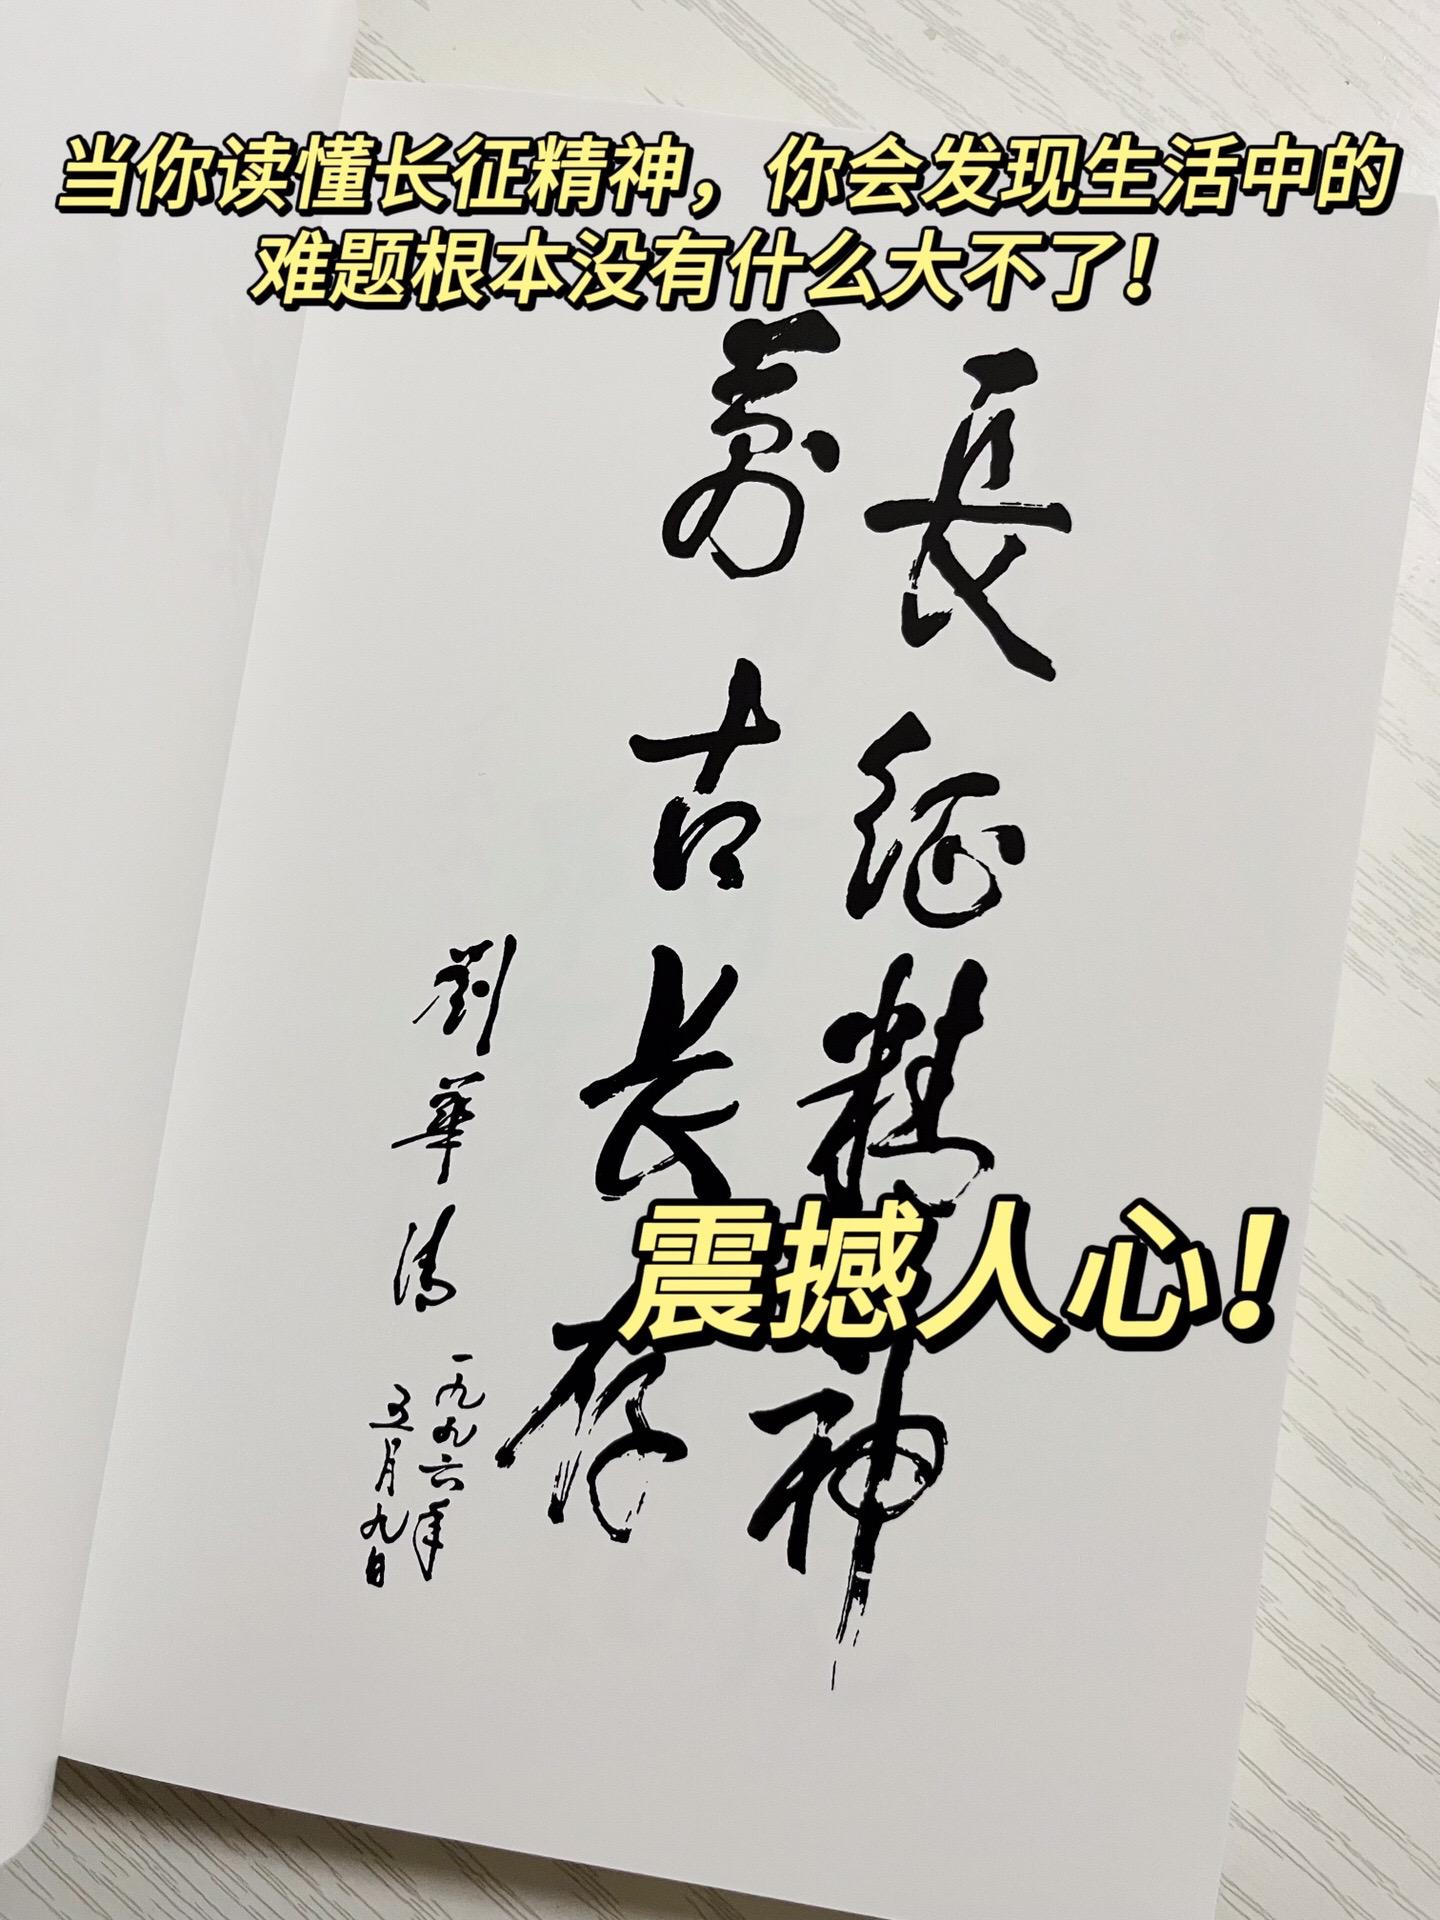 当你读懂长征精神，你会发现生活中的
难题根本没有什么大不了！
長征精神
萬古长存
劉華清
一九九六年
五月九日
震撼人心！